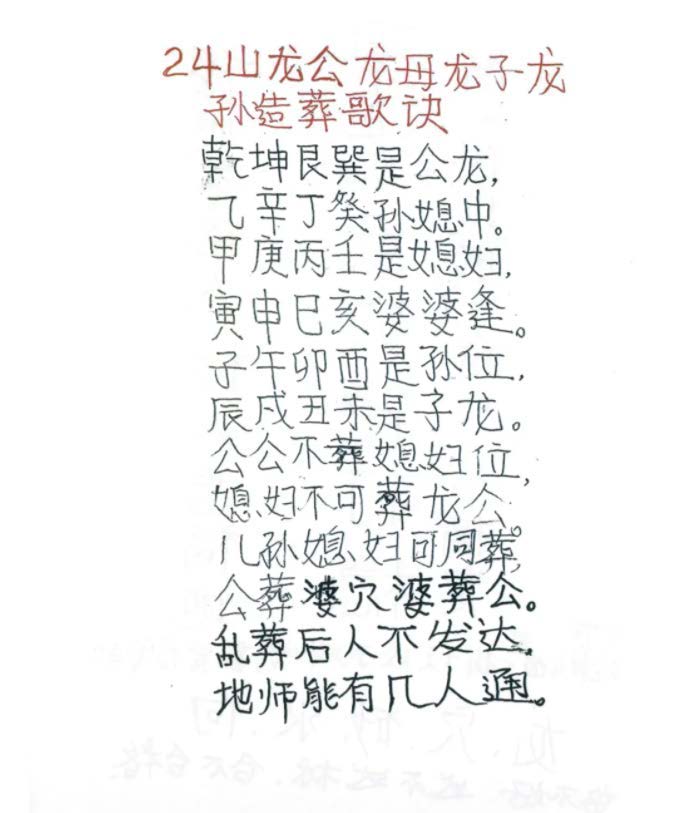 24山龙公龙母龙子龙
孙造葬歌诀
乾坤艮巽是公龙,
乙辛丁癸孙媳中。
甲庚丙壬是媳妇,
寅申巳亥婆婆逢。
子午卯酉是孙位,
辰戌丑未是子龙。
公公不葬媳妇位,
媳妇不可葬龙公。
儿孙媳妇可同葬,
公葬婆穴婆葬公。
乱葬后人不发达,
地师能有几人通。